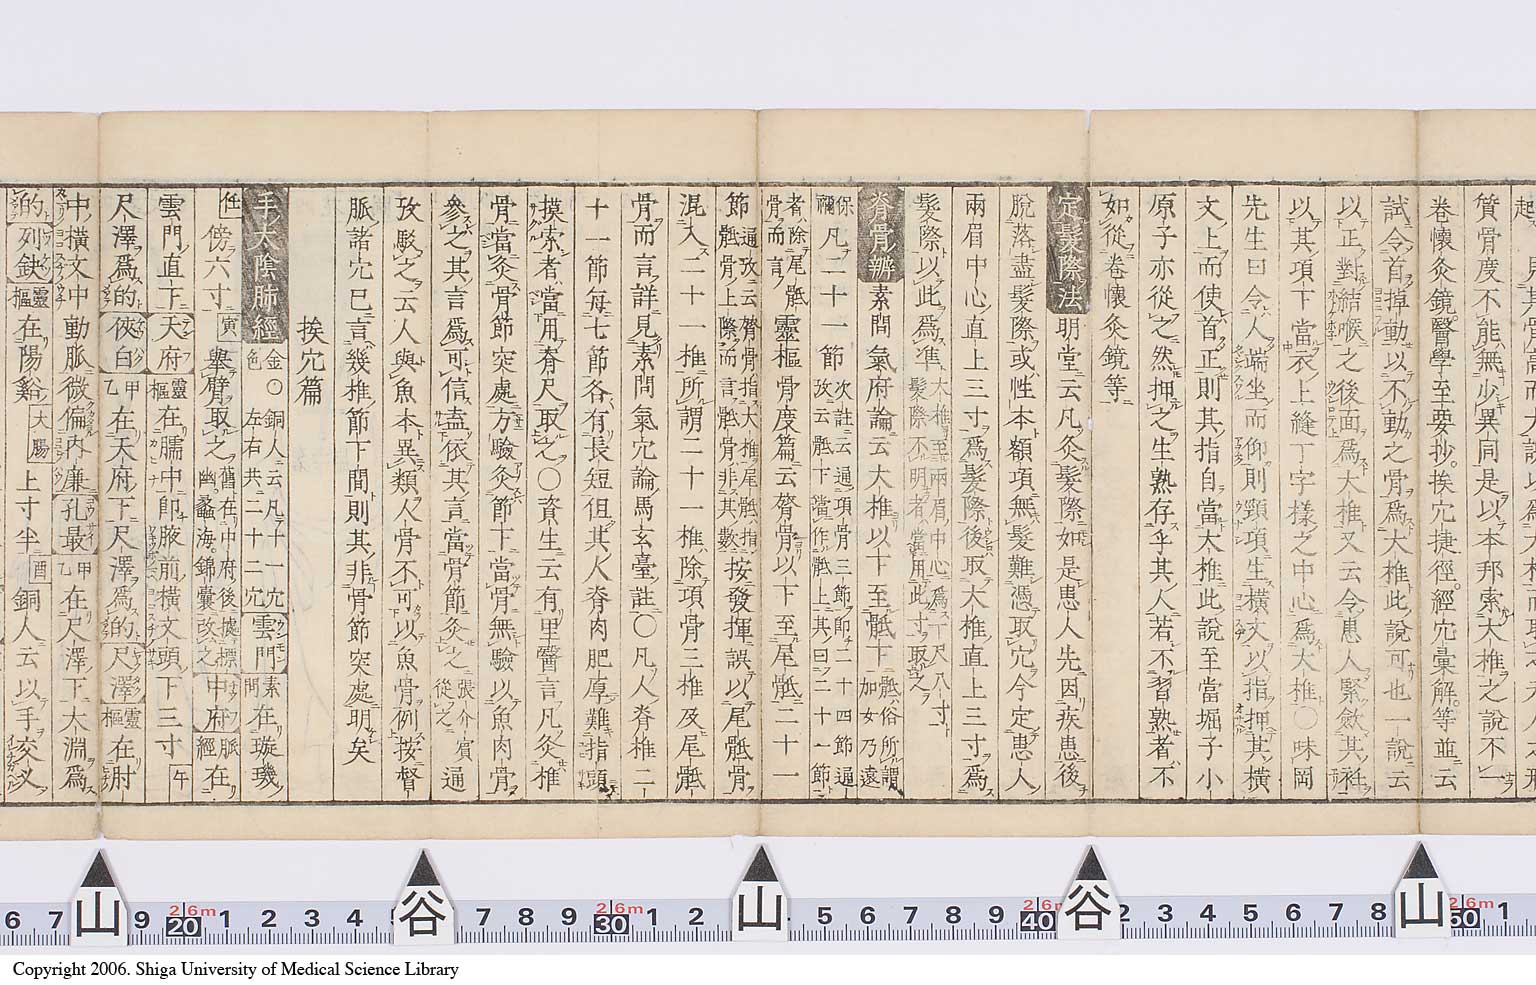 質骨度不能無少異同是以本邦索大椎之說不一
卷懷灸鏡。醫學至要抄。挨穴捷徑。經穴彙解。等並云
試令首掉動以不動之骨爲大椎此說可也一說云
以正對結喉之後面爲大椎又云令患人緊斂其衽
以其項下當衣上縫丁字樣之中心爲大椎○味岡
先生曰令人端坐而仰則頸項生橫文以指押其橫
文上而使首正則其指自當大椎此說至當堀子小
原子亦從之然押之生熟存乎其人若不習熟者不
如從卷懷灸鏡等
定髮際法 明堂云凡灸髮際如是患人先因疾患後
脫落盡髮際或性本額項無髮難憑取穴今定患人
兩眉中心直上三寸爲髮際後取大椎直上三寸爲
髮際以此爲準 大椎至兩眉中心爲一尺八寸
髮際不明者當用此寸取之
脊骨辨 素問氣府論云大椎以下至骶下 骶俗所謂
加女乃遠
保祢 凡二十一節 次註云通項骨三節即二十四節通
攷云骶下當作骶上其曰二十一節
者除尾骶
骨而言 靈樞骨度篇云膂骨以下至尾骶二十一
節 通攷云膂骨指大椎尾骶指
骶骨上際而言骶骨非其數 按發揮誤以尾骶骨
混入二十一椎所謂二十一椎除項骨三椎及尾骶
骨而言詳見素問氣穴論馬玄臺註○凡人脊椎二
十一節每七節各有長短但其人脊肉肥厚難指頭
摸索者當用脊尺取之○資生云有里醫言凡灸椎
骨當灸骨節突處方驗灸節下當骨無驗以魚肉骨
參之其言爲可信蓋依其言當骨節灸之 張介賓通
從之
攷駁之云人與魚本異類人骨不可以魚骨例按督
脈諸穴已言幾椎節下間則其非骨節突處明矣
挨穴篇
手太陰肺經 金
色 ○ 銅人云凡十一穴
左右共二十二穴 雲門 素
問 在璇璣
任 傍六寸 寅 舉臂取之 舊在中府後據標
幽蠡海錦囊改之 中府 脈
經 在
雲門直下 天府 靈
樞 在臑中即腋前橫文頭下三寸 午
尺澤爲的 俠白 甲
乙 在天府下尺澤爲的 尺澤 靈
樞 在肘
中橫文中動脈微偏內廉 孔最 甲
乙 在尺澤下大淵爲
的 列缺 靈
樞 在陽谿 大腸 上寸半 酉 銅人云以手交叉
6 7 9 20 1 2 3 4 7 8 9 30 1 2 4 5 6 7 8 9 40 2 3 4 5 6 7 8 50 1
2 6m 2 6m 2 6m 2 6m
山 谷 山 谷 山
Copyright 2006. Shiga University of Medical Science Library